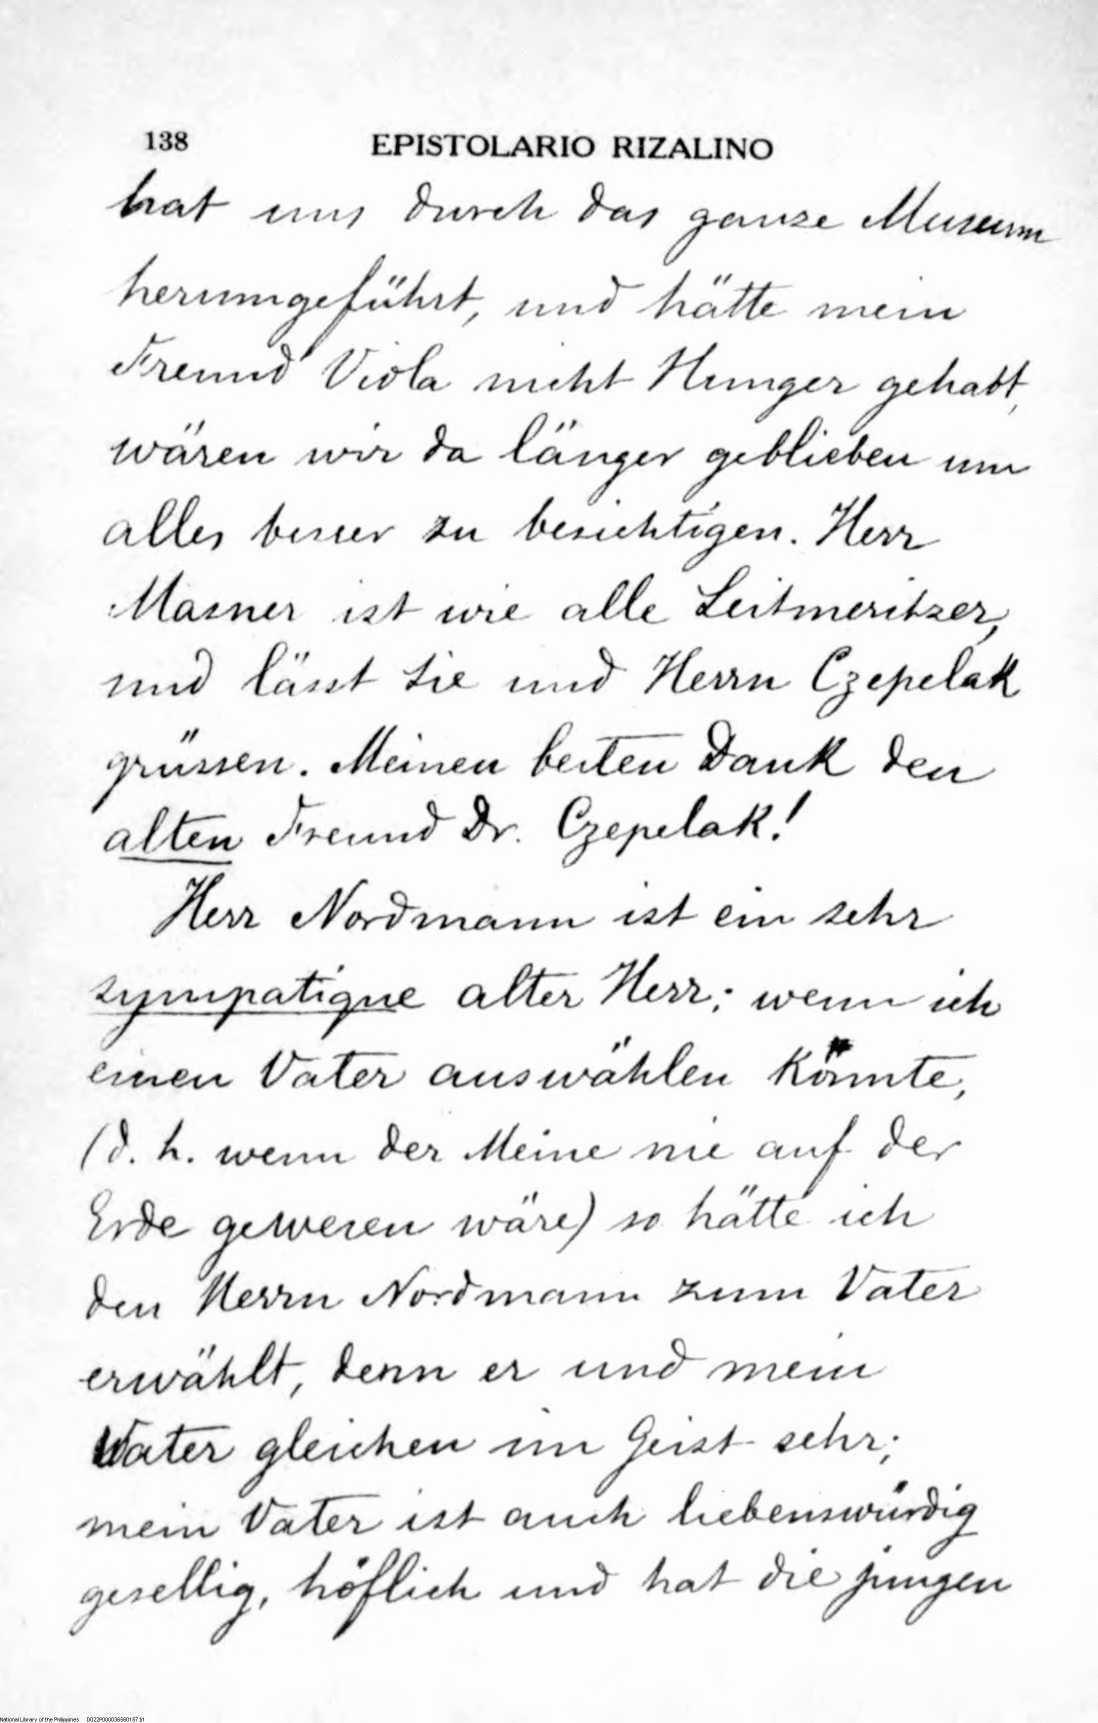 138 EPISTOLARIO RIZALINO
hat uns durch das ganze Museum
herumgeführt, und hätte mein
Freund Viola nicht Hunger gehabt,
wären wir da länger geblieben um
alles besser zu besichtigen. Herr
Masner ist wie alle Leitmeritzer,
und lässt Sie und Herrn Czepelak
grüssen. Meinen besten Dank den
alten Freund Dr. Czepelak!
Herr Nordmann ist ein sehr
sympatique alter Herr; wenn ich
einen Vater auswählen könnte,
(d. h. wenn der Meine nie auf der
Erde gewesen wäre) so hätte ich
den Herrn Nordmann zum Vater
erwählt, denn er und mein
Vater gleichen im Geist sehr;
mein Vater ist auch liebenswürdig
gesellig, höflich und hat die jungen
National Library of the Philippines